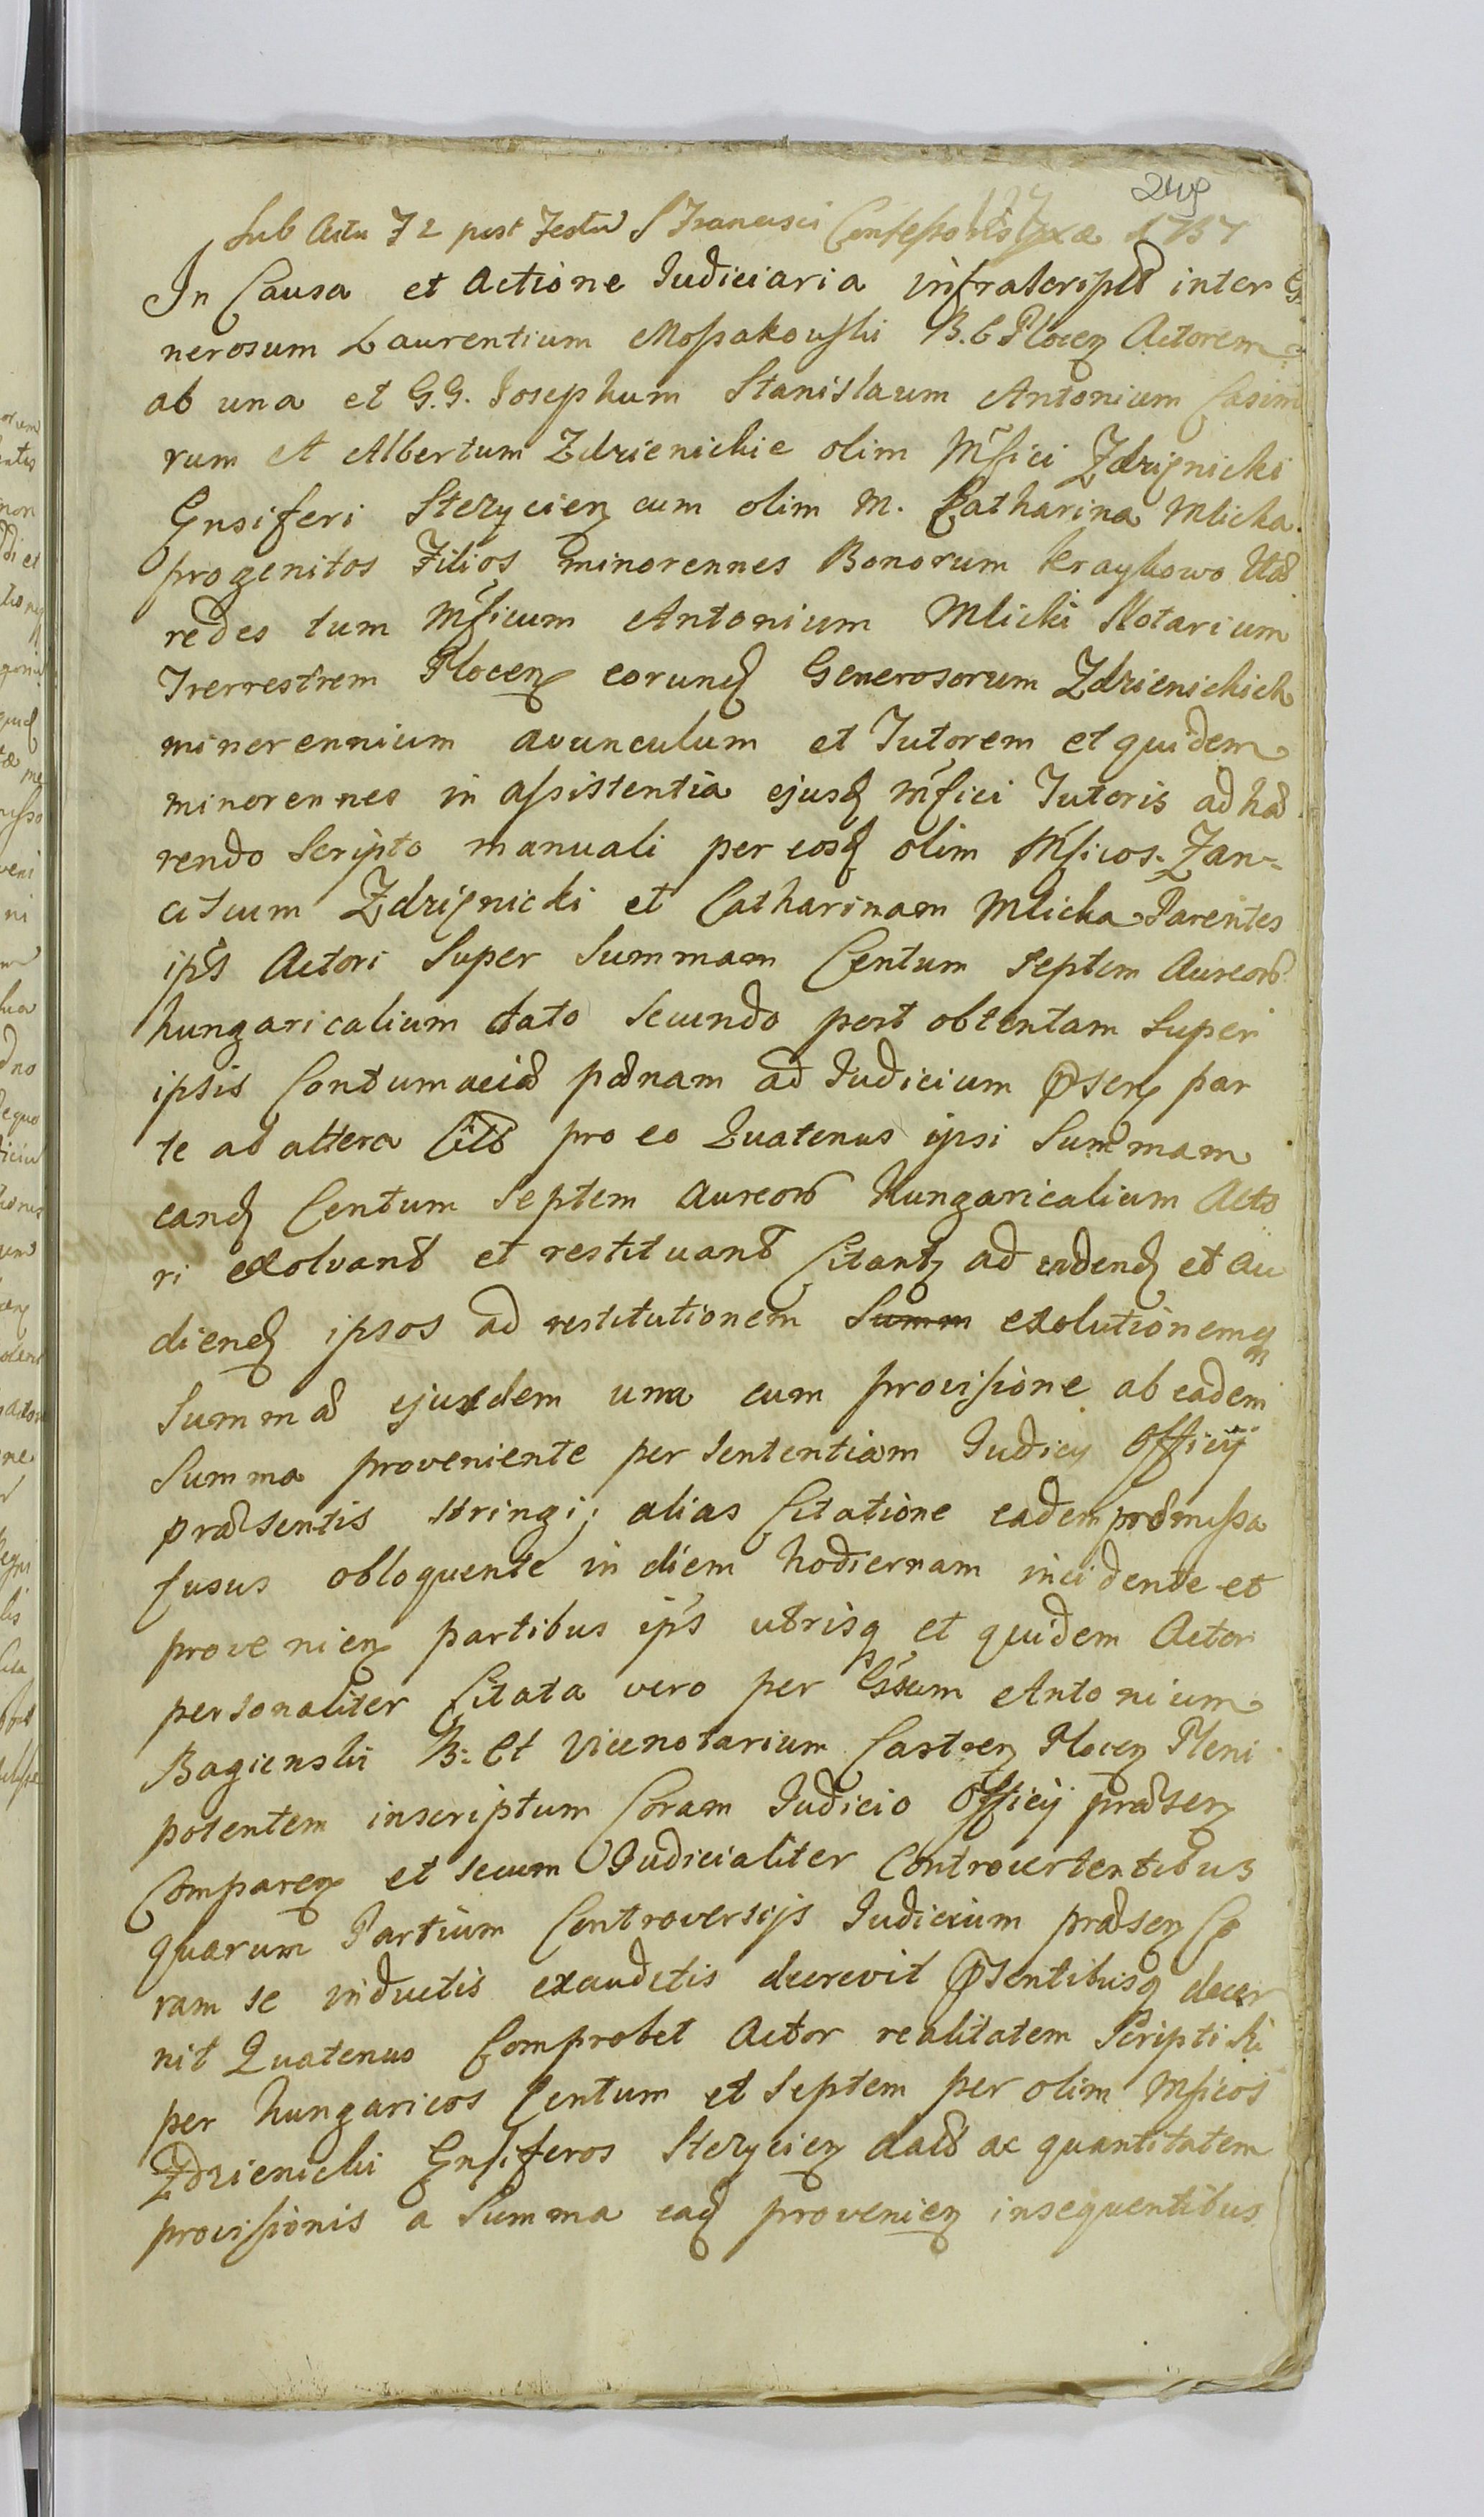 249
Sub Actu F 2 post Festū S Francisci Confessoris 1757
In Causa et Actione Judiciaria infrascripta inter Ge
nerosum Laurentium Mossakowski B. C Plocen Actorem
ab una et G.G. Josephum Stanislaum Antonium Casimi
rum et Albertum Zdzienickie olim Mfici Zdzięnicki
Ensiferi Stezycien cum olim M. Catharina Mlicka
progenitos Filios minorennes Bonorum Kraykowo Hæ
redes tum Mficum Antonium Mlicki Notarium
Trerrestrem Plocen eorund Generosorum Zdzienickich
minorennium avunculum et Tutorem et quidem
minorennes in assistentia ejusd Mfici Tutoris adhæ
rendo Scripto manuali per eosd olim Mficos Fran=
ciscum Zdzięnicki et Catharinam Mlicka Parentes
ips Actori Super Summam Centum Septem Aureor
hungaricalium dato secundo post obtentam Super
ipsis Contumaciæ pænam ad Judicium Psen par
te ab altera Citt pro eo Quatenus ipsi Summam
eand Centum Septem aureor Hungaricalium Acto
ri exolvant et restituant Citant ad vdend et au
diend ipsos ad restitutionem Summ exolutionemq
Summæ ejusdem una cum provisione ab eadem
Summa proveniente per Sententiam Judicy Officij
præsentis stringi; alias Citatione eadem præmissa
fusus obloquente in diem hodiernam incidente et
provenien partibus ips utrisq et quidem Actor
personaliter Citata vero per Gssum Antonium
Bagienski B: Ct Vicenotarium Castren Plocen Pleni
potentem inscriptum Coram Judicio Officij præsen
Comparen et secum Judicialiter Controvertentibus
quarum Partium Controversijs Judicium præsen Co
ram se inductis exauditis decrevit Psentibusq decer
nit Quatenus Comprobet Actor realitatem Scripti Su
per hungaricos Centum et Septem per olim Mficos
Zdzienicki Ensiferos Stezycien dati ac quantitatem
provisionis a Summa ead provenien insequentibus